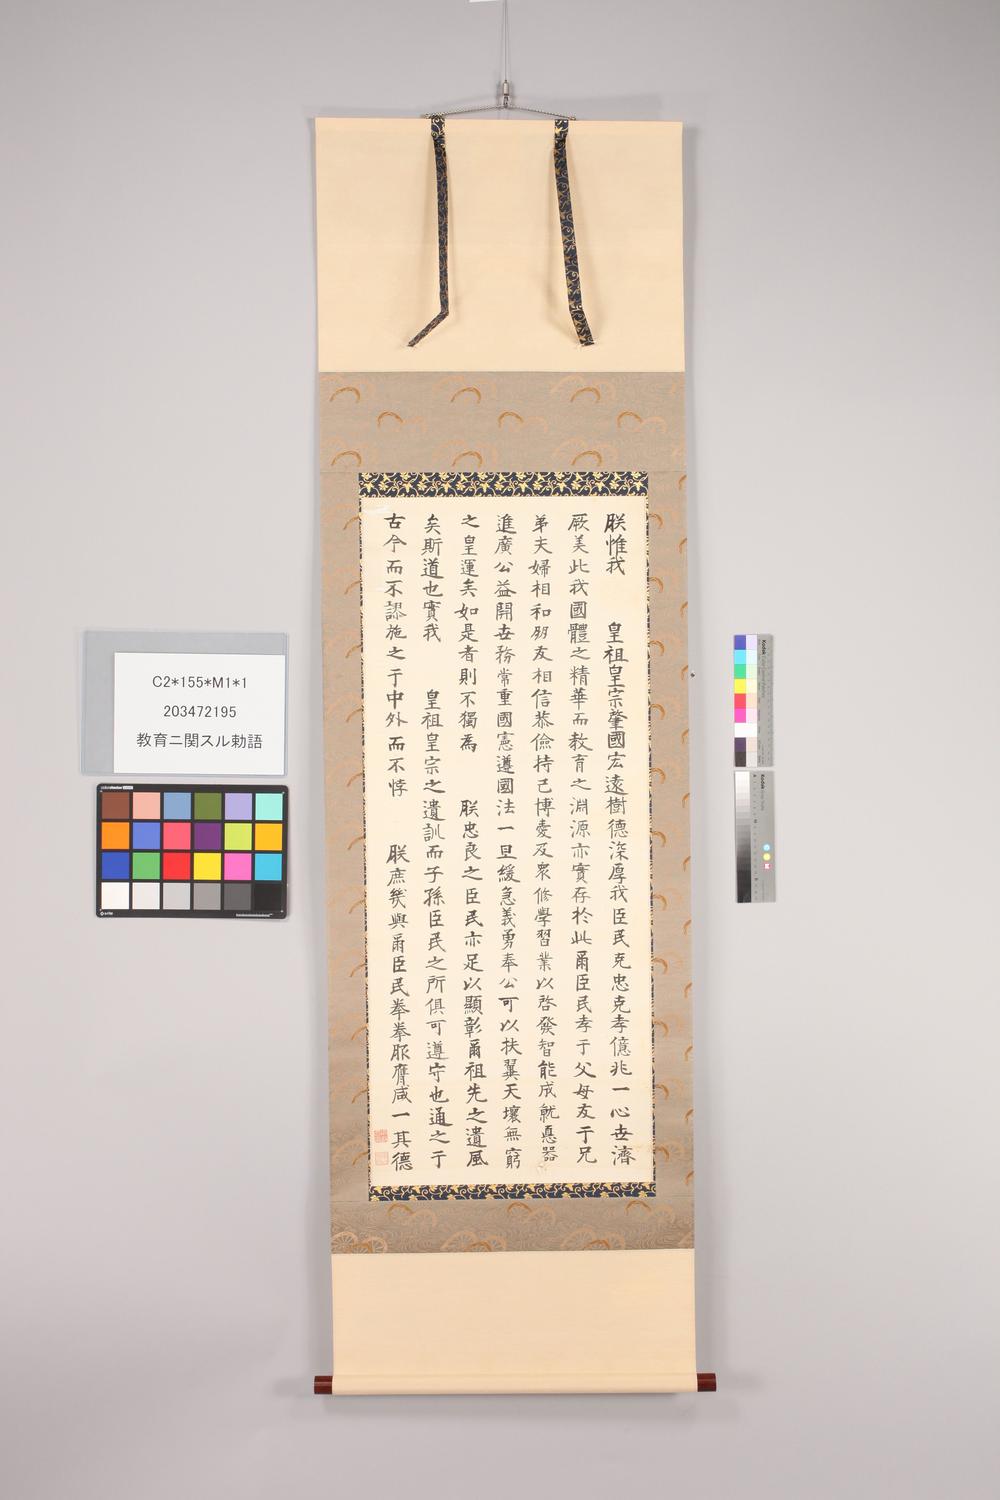 C2*155*M1*1
203472195
教育ニ関スル勅語
朕惟我 皇祖皇宗肇國宏遠樹德深厚我臣民克忠克孝億兆一心世濟
厥美此我國體之精華而教育之淵源亦實存於此爾臣民孝于父母友于兄
弟夫婦相和朋友相信恭儉持己博愛及衆修學習業以啓發智能成就悳器
進廣公益開世務常重國憲遵國法一旦緩急義勇奉公可以扶翼天壤無窮
之皇運矣如是者則不獨爲 朕忠良之臣民亦足以顯彰爾祖先之遺風
矣斯道也實我 皇祖皇宗之遺訓而子孫臣民之所俱可遵守也通之于
古今而不謬施之于中外而不悖 朕庶幾與爾臣民拳拳服膺咸一其德
Kodak
Kodak